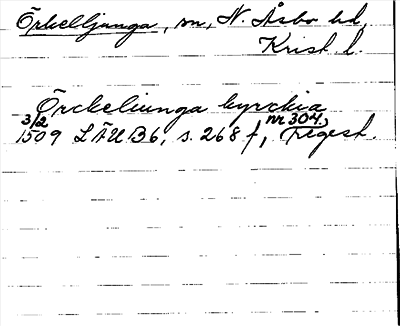 Örkelljunga, sn, N. Åsbo hd,
Krist. l.
Örckeliunga kyrckia
3/2 1509 LÄU B6, s. 268 f, nr 304, regest.